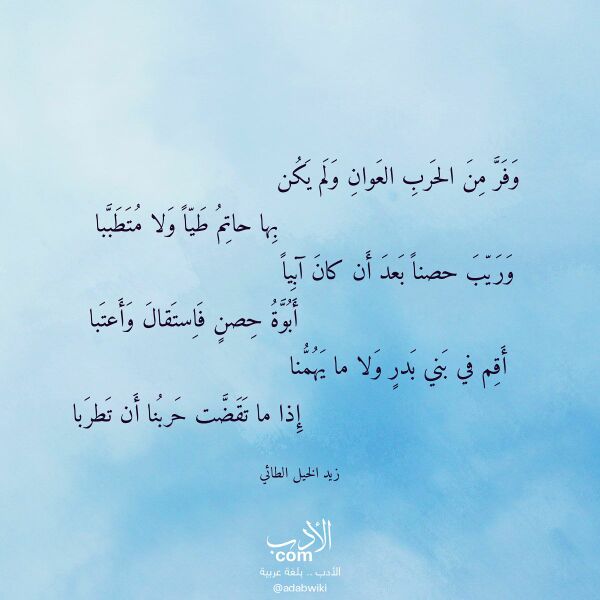 وَفَرَّ مِنَ الحَربِ العَوانِ وَلَم يَكُن
بِها حاتِمُ طَيّاً وَلا مُتَطَبَّبا
وَرَيّبَ حصناً بَعدَ أَن كانَ آبِياً
أَبُوَّةُ حِصنٍ فَاِستَقالَ وَأَعتَبا
أَقِم في بَني بَدرٍ وَلا ما يَهُمُّنا
إِذا ما تَقَضَّت حَربُنا أَن تَطرَبا
زيد الخيل الطائي
الأدب
com
الأدب .. بلغة عربية
@adabwiki